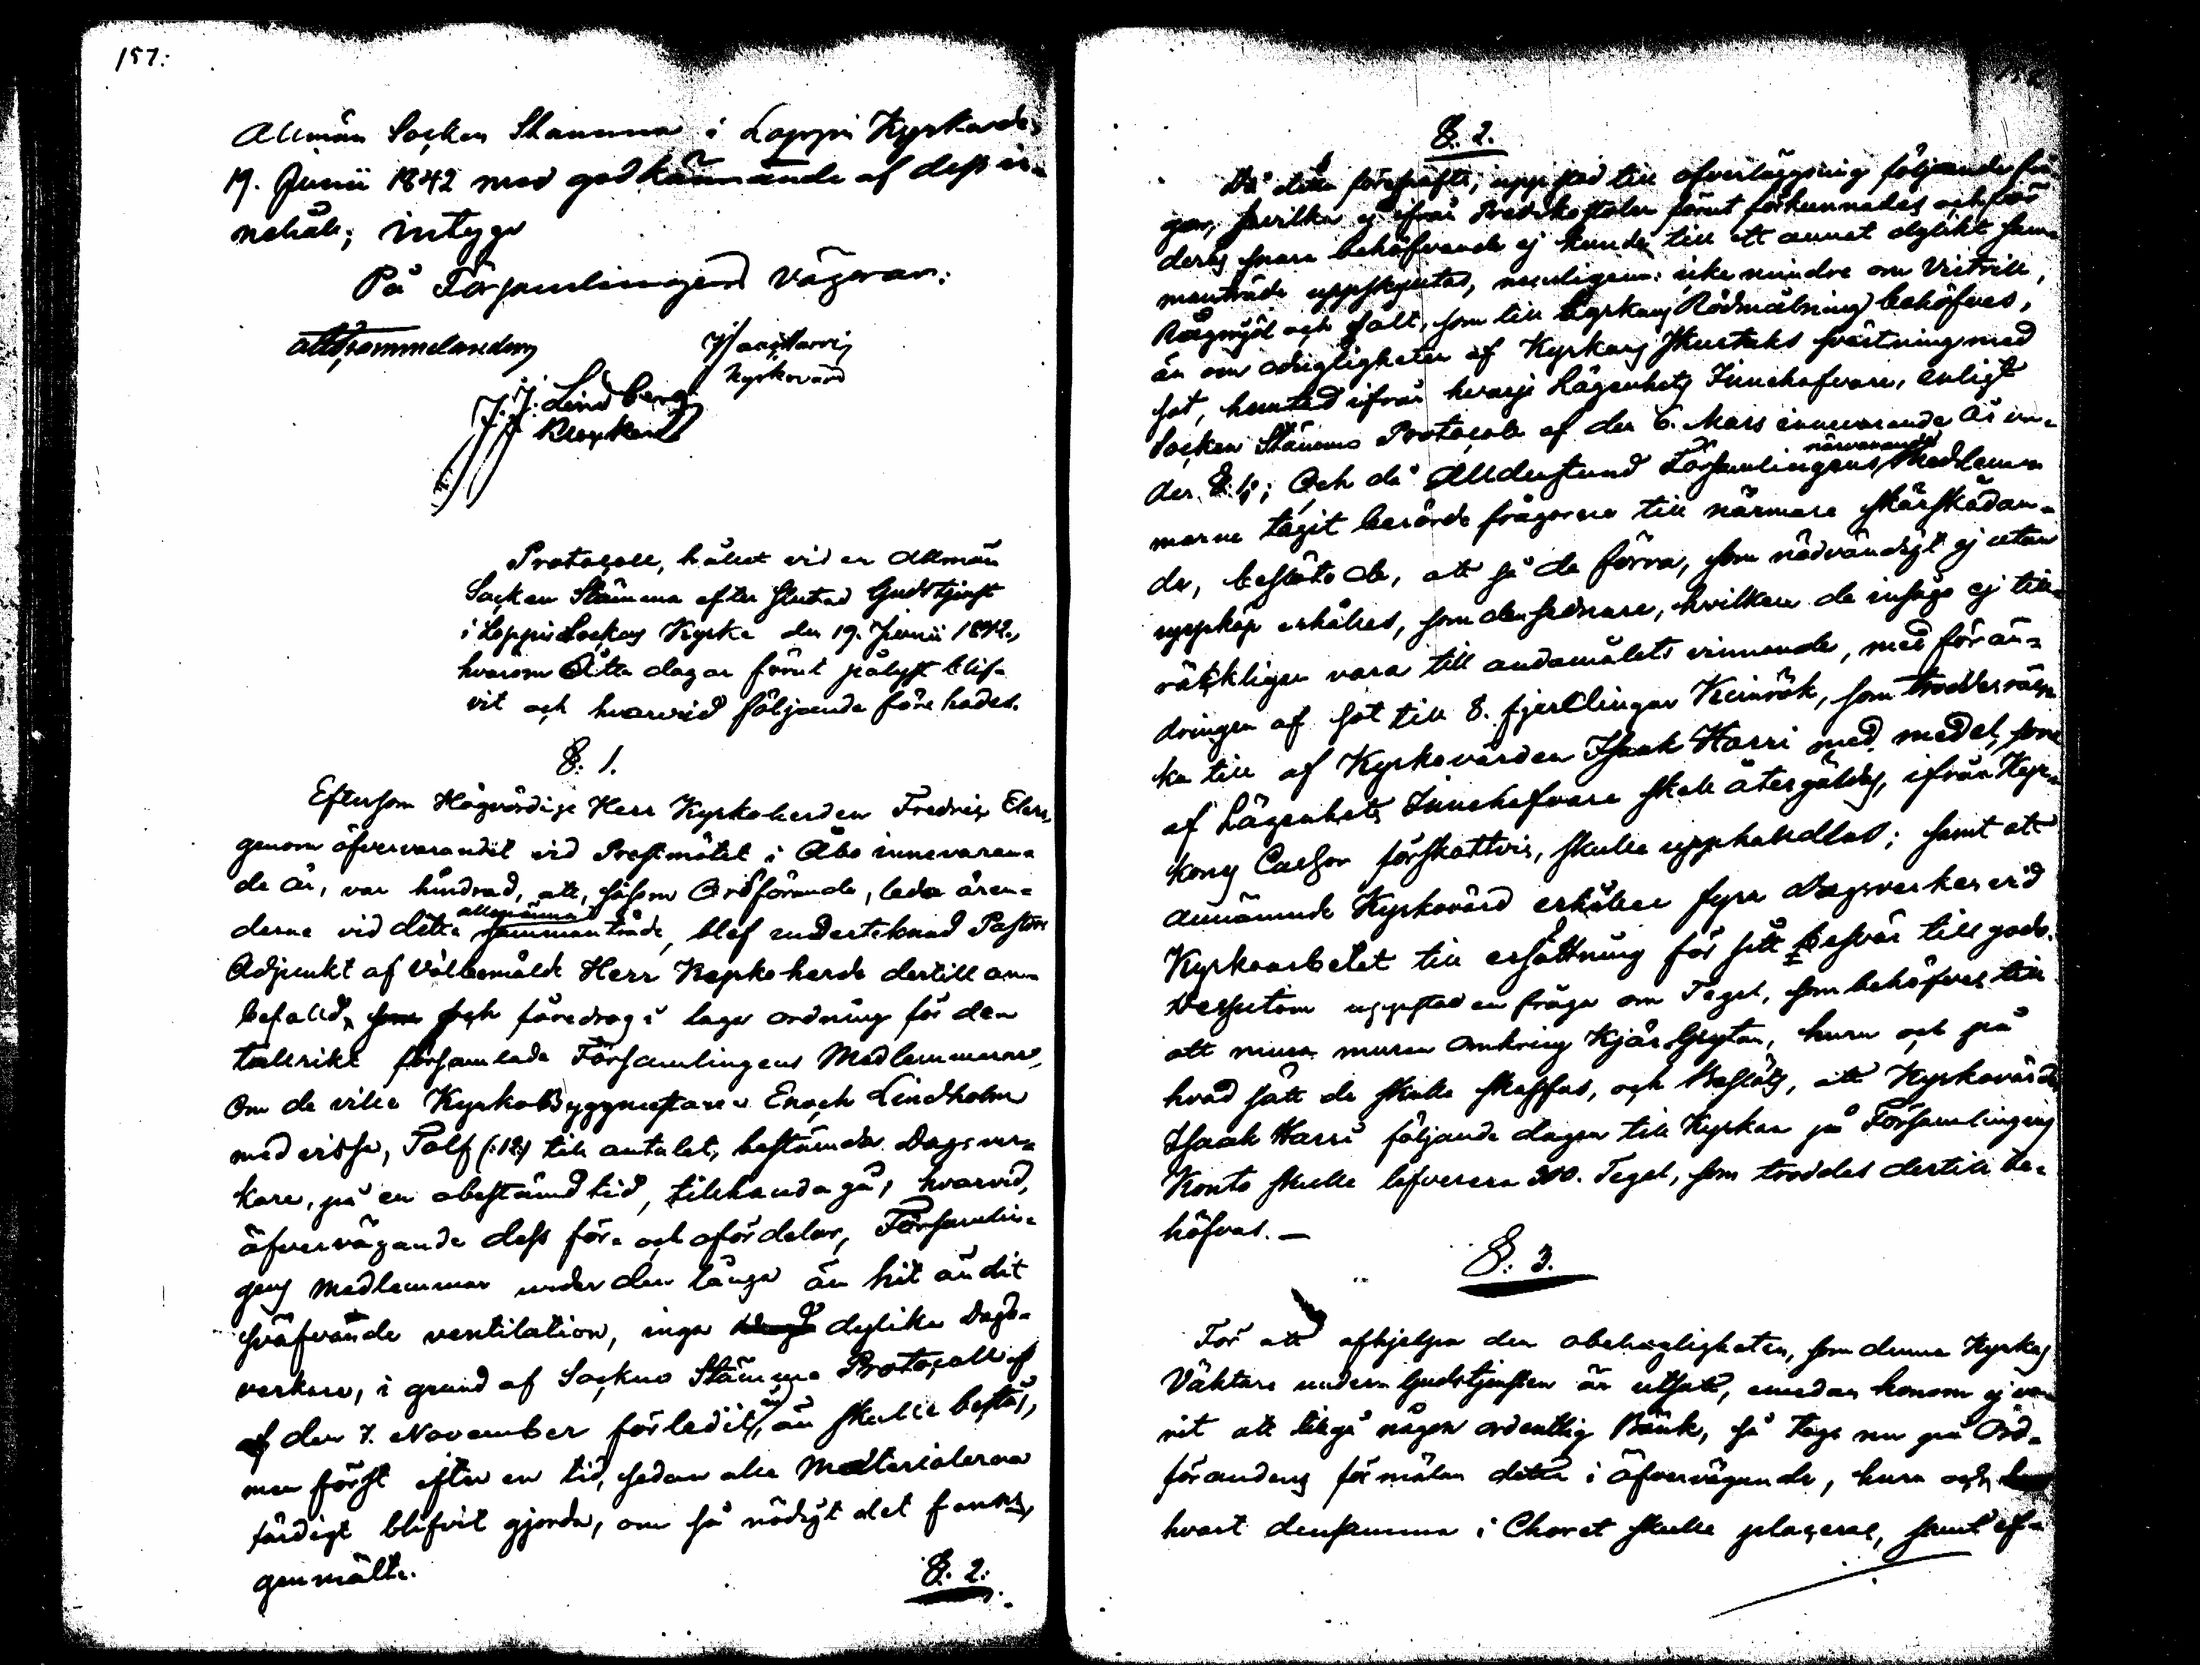 157.
Allmän Socken Stämma i Loppis Kyrka den
19. Junii 1842 med godkännande af dess in-
nehåll; intyga
På Församlingens Vägnar:
Isaac Harri
Kyrkovärd
J. J. Lindberg
Protocoll, hållet vid en Allmän
Socken Stämma efter slutad Gudstjenst
i Loppis Sockens Kyrka den 19. Junii 1842.,
hvarom Åtta dagar förut pålyst blif-
vit och hvarvid följande förehades.
§. 1.
Eftersom Högvördige Herr Kyrkoherden Fredric
genom öfvervarandet vid Prestmötet i Åbo innevaran-
de år, var hindrad, att, såsom Ordförande, leda ären-
derne vid detta allmänna sammanträde, blef undertecknad Pastors
Adjunkt af Välbemälde Herr Kyrkoherde dertill an-
befalld, och föredrog i laga ordning för den
talrikt församlade Församlingens Medlemmarne,
Om de ville KyrkoByggmästaren Enoch Lindholm
med vissa, Tolf (:12:) till antalet, bestämda Dagsver-
kare, på en obestämd tid, tillhanda gå, hvarvid,
öfvervägande dess för- och ofördelar, Församlin-
gens Medlemmar under den långa än hit än dit
sväfvande ventilation, inga dylika Dags-
verkare, i grund af Sockne Stämma Protocoll af
af den 7. November förledit, än skulle bestå,
men först efter en tid, sedan alla Materialerna
färdigt blifvit gjorda, om så nödigt det fanns,
genmälte.
§. 2.
§. 2.
Då detta föreskrefts, uppstod till öfverläggning följande frå-
gor, hvilka ej ifrån Predikostolen förut förkunnades och för
deras snara behöfvande ej kunde till ett annat dylikt sam-
manträde uppskjutas, nemligen: icke mindre om Victrill,
Rågmjöl och Salt, som till Kyrkans Rödmålning behöfves,
än om odugligheten af Kyrkans Skurtaks svärtning med
sot, hemtad ifrån hvarje Lägenhets Innehafvare, enligt
Socken Stämmo Protocoll af den 6. Mars innevarande år un-
der §. 1; Och då Allderstund Församlingens närvarande Medlem-
marne tagit berörde frågorna till närmare skärskådan-
de, beslöto de, att så de förra, som nödvändigt ej utan
uppköp erhålles, som den sednare, hvilken de insågo ej till-
räckligen vara till ändamålets vinnande, med förän-
dringen af sot till 8. fjerdlingar Keinrök, som
ka till af Kyrkovärden Isaak Harri med medel, som
af Lägenhets Innehafvare skall återgäldas, ifrån Kyr-
kans Cassan förskottvis, skulle upphandlas; samt att
annämnde Kyrkovärd erhåller fyra Dagsverken vid
Kyrkoarbetet till ersättning för sitt besvär till godo.
Dessutom uppstod en fråga om Tegel, som behöfves till
att mura muren omkring Kjär Grytan, huru och på
hvad sätt de skulle skaffas, och Beslöts, att Kyrkovärden
Isaak Harri följande dagen till Kyrkan på Församlingens
Konto skulle lefverera 300. Tegel, som troddes dertill be-
höfvas.—
§. 3.
För att afhjelpa den obehagligheten, som denna Kyrkas
Väktare under Gudstjensten är utsatt, emedan honom ej va-
rit att tillgå någon ordentlig Bänk, så togs nu på Ord-
förandens förmälan detta i öfvervägande, huru och
hvart densamma i Choret skulle placeras, samt ef-